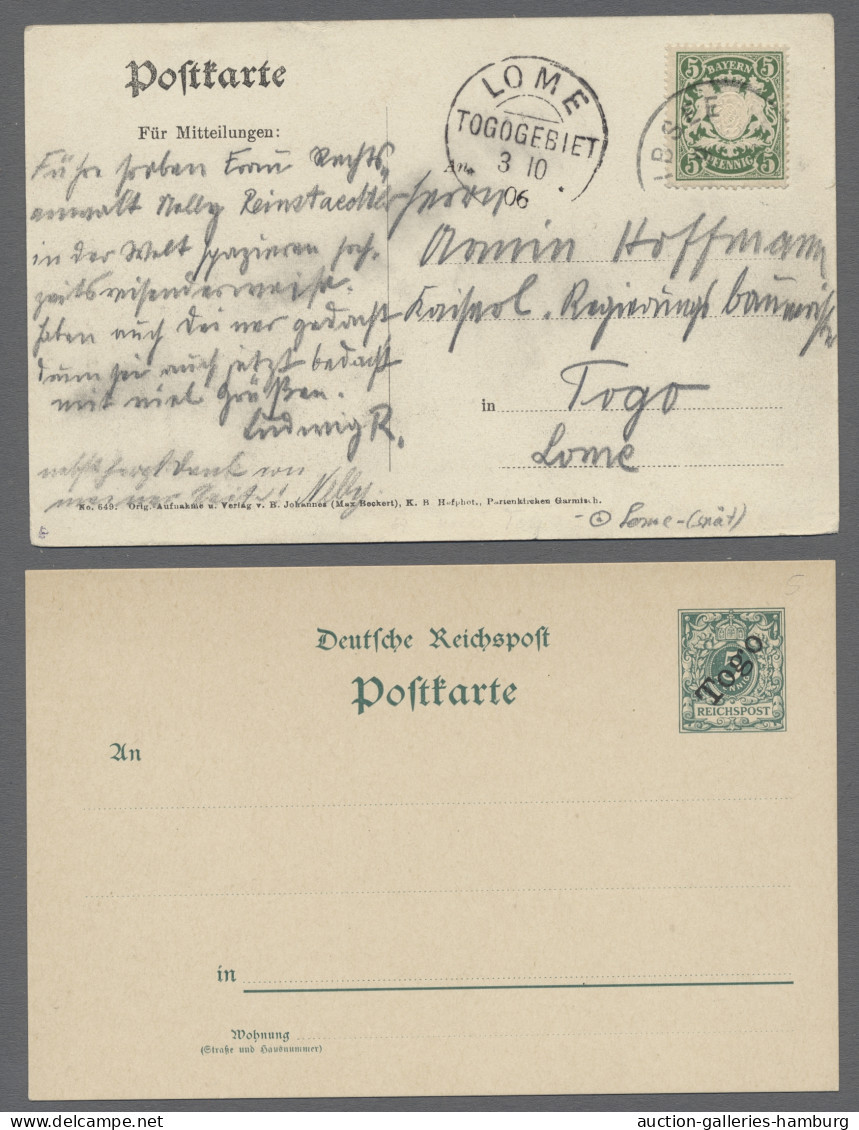 Postkarte
Für Mitteilungen:
Führe soeben Frau Rechts-
anwalt Nelly
in der Welt spazieren hoch-
zeitsreisenderweise.
haben auch deiner gedacht
drum sei auch jetzt bedacht
mit viel Grüßen.
Ludwig R.
nebst herzl. Dank von
meiner Seite! Nelly.
LOME
TOGOGEBIET
3 10
06
BAYERN
5 5
5 PFENNIG 5
An
Herrn
Armin Hoffmann
Kaiserl. Regierungsbaumeister
in Togo
Lome
No. 649. Orig.-Aufnahme u. Verlag v. B. Johannes (Max Beckert), K. B. Hofphot., Partenkirchen Garmisch.
Lome-(spät)
5
Deutsche Reichspost
Postkarte
Togo
REICHSPOST
An
in
Wohnung
(Straße und Hausnummer)
auction-galleries-hamburg